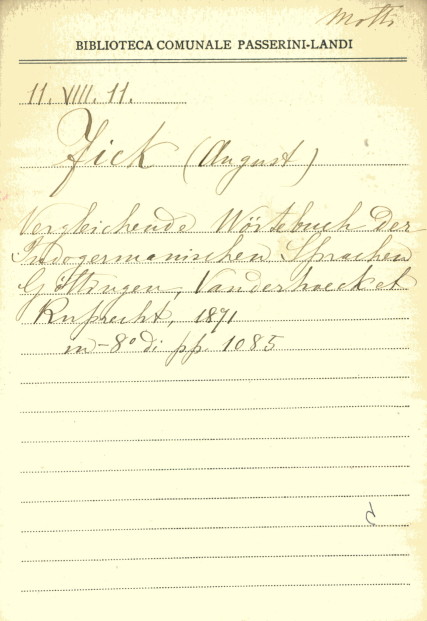 Motti
BIBLIOTECA COMUNALE PASSERINI-LANDI
11. VIII. 11.
Fick (August)
Vergleichende Wörtebuch der
Indogermanischen Sprachen
Göttingen, Vanderhoecket
Ruprecht, 1871
in-8° di pp. 1085